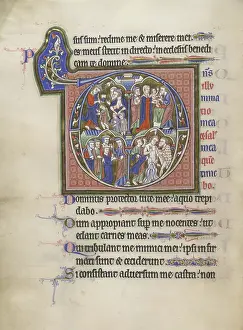 sus sum: redime me & miserere mei.
Pes meus stetit in directo: in ecclesiis benedi
cam te domine.
D
nus
illu
mina
mea
mea
Dominus protector uite mee: a quo trepi
dabo.
Dum appropiant sup me nocentes: ut
edant carnes meas.
Qui tribulant me inimici mei: ipsi infir
mati sunt & ceciderunt.
Si consistant aduersum me castra: non